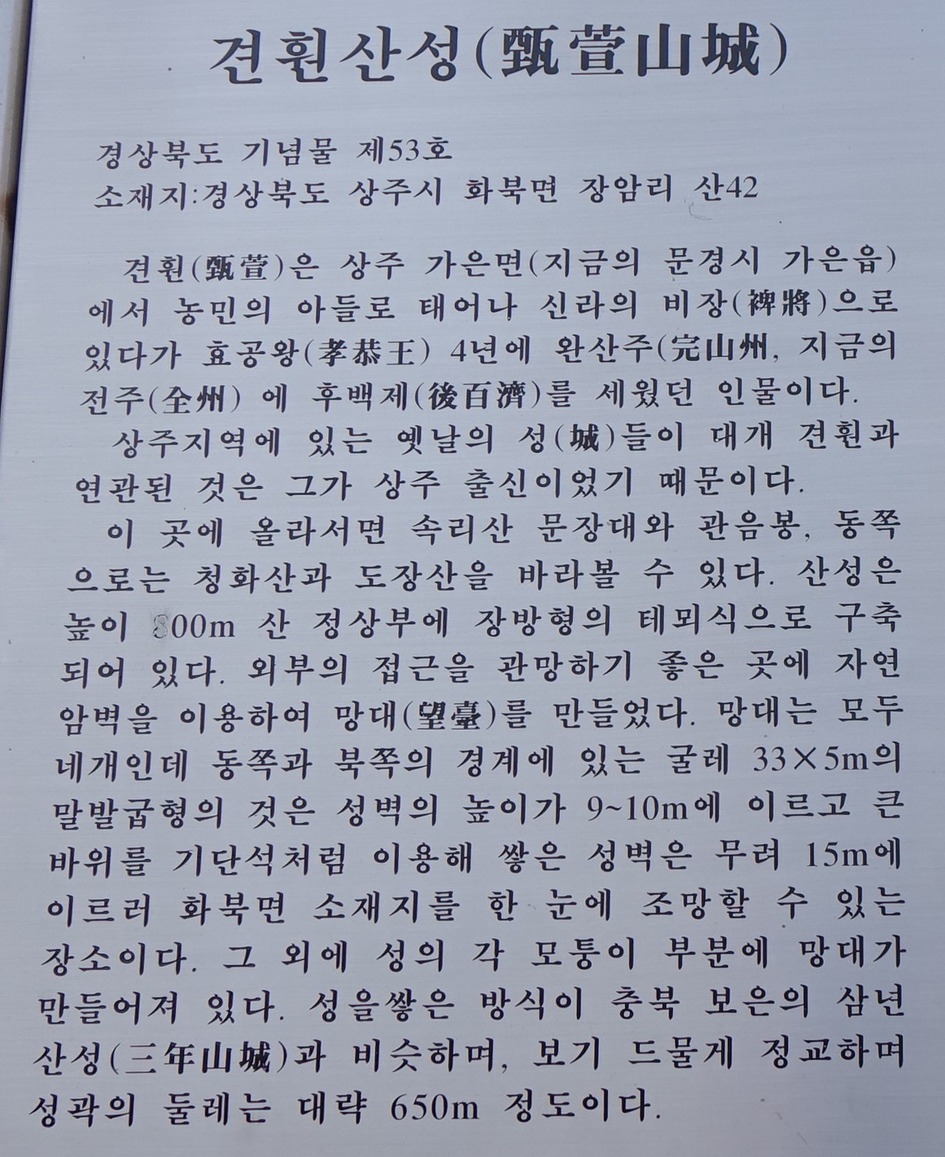 견훤산성(甄萱山城)
경상북도 기념물 제53호
소재지:경상북도 상주시 화북면 장암리 산42
견훤(甄萱)은 상주 가은면(지금의 문경시 가은읍)
에서 농민의 아들로 태어나 신라의 비장(裨將)으로
있다가 효공왕(孝恭王) 4년에 완산주(完山州, 지금의
전주(全州) 에 후백제(後百濟)를 세웠던 인물이다.
상주지역에 있는 옛날의 성(城)들이 대개 견훤과
연관된 것은 그가 상주 출신이었기 때문이다.
이 곳에 올라서면 속리산 문장대와 관음봉, 동쪽
으로는 청화산과 도장산을 바라볼 수 있다. 산성은
높이 800m 산 정상부에 장방형의 테뫼식으로 구축
되어 있다. 외부의 접근을 관망하기 좋은 곳에 자연
암벽을 이용하여 망대(望臺)를 만들었다. 망대는 모두
네개인데 동쪽과 북쪽의 경계에 있는 굴레 33×5m의
말발굽형의 것은 성벽의 높이가 9~10m에 이르고 큰
바위를 기단석처럼 이용해 쌓은 성벽은 무려 15m에
이르러 화북면 소재지를 한 눈에 조망할 수 있는
장소이다. 그 외에 성의 각 모퉁이 부분에 망대가
만들어져 있다. 성을쌓은 방식이 충북 보은의 삼년
산성(三年山城)과 비슷하며, 보기 드물게 정교하며
성곽의 둘레는 대략 650m 정도이다.